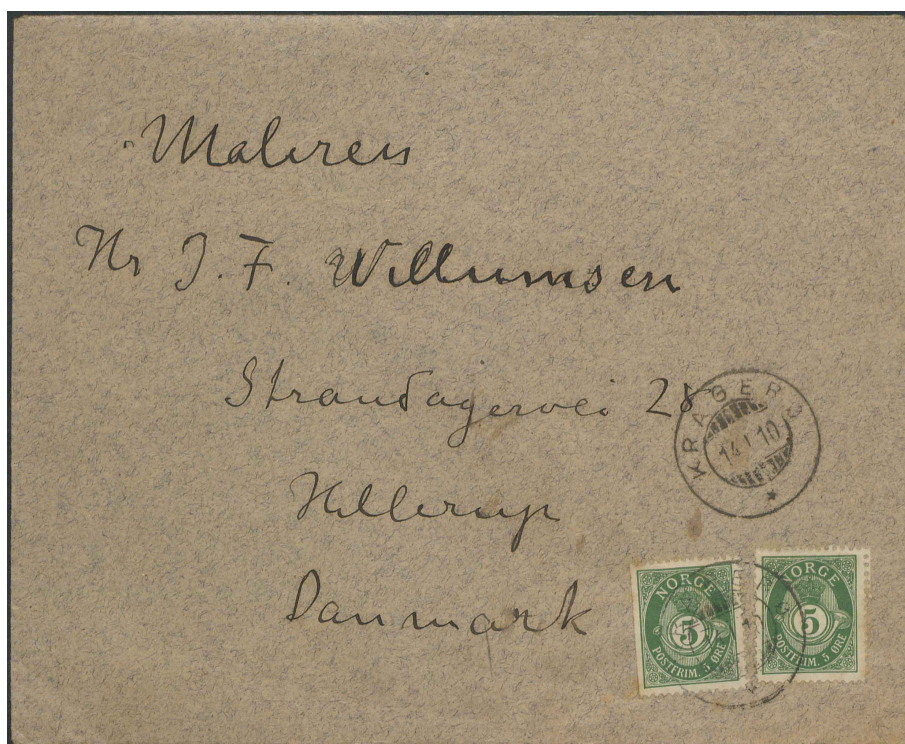 Maleren
Hr J. F. Willumsen
Strandagervei 28
Hellerup
Danmark
KRAGERØ
14 I 10
NORGE
5
POSTFRIM. 5 ØRE
NORGE
5
POSTFRIM. 5 ØRE